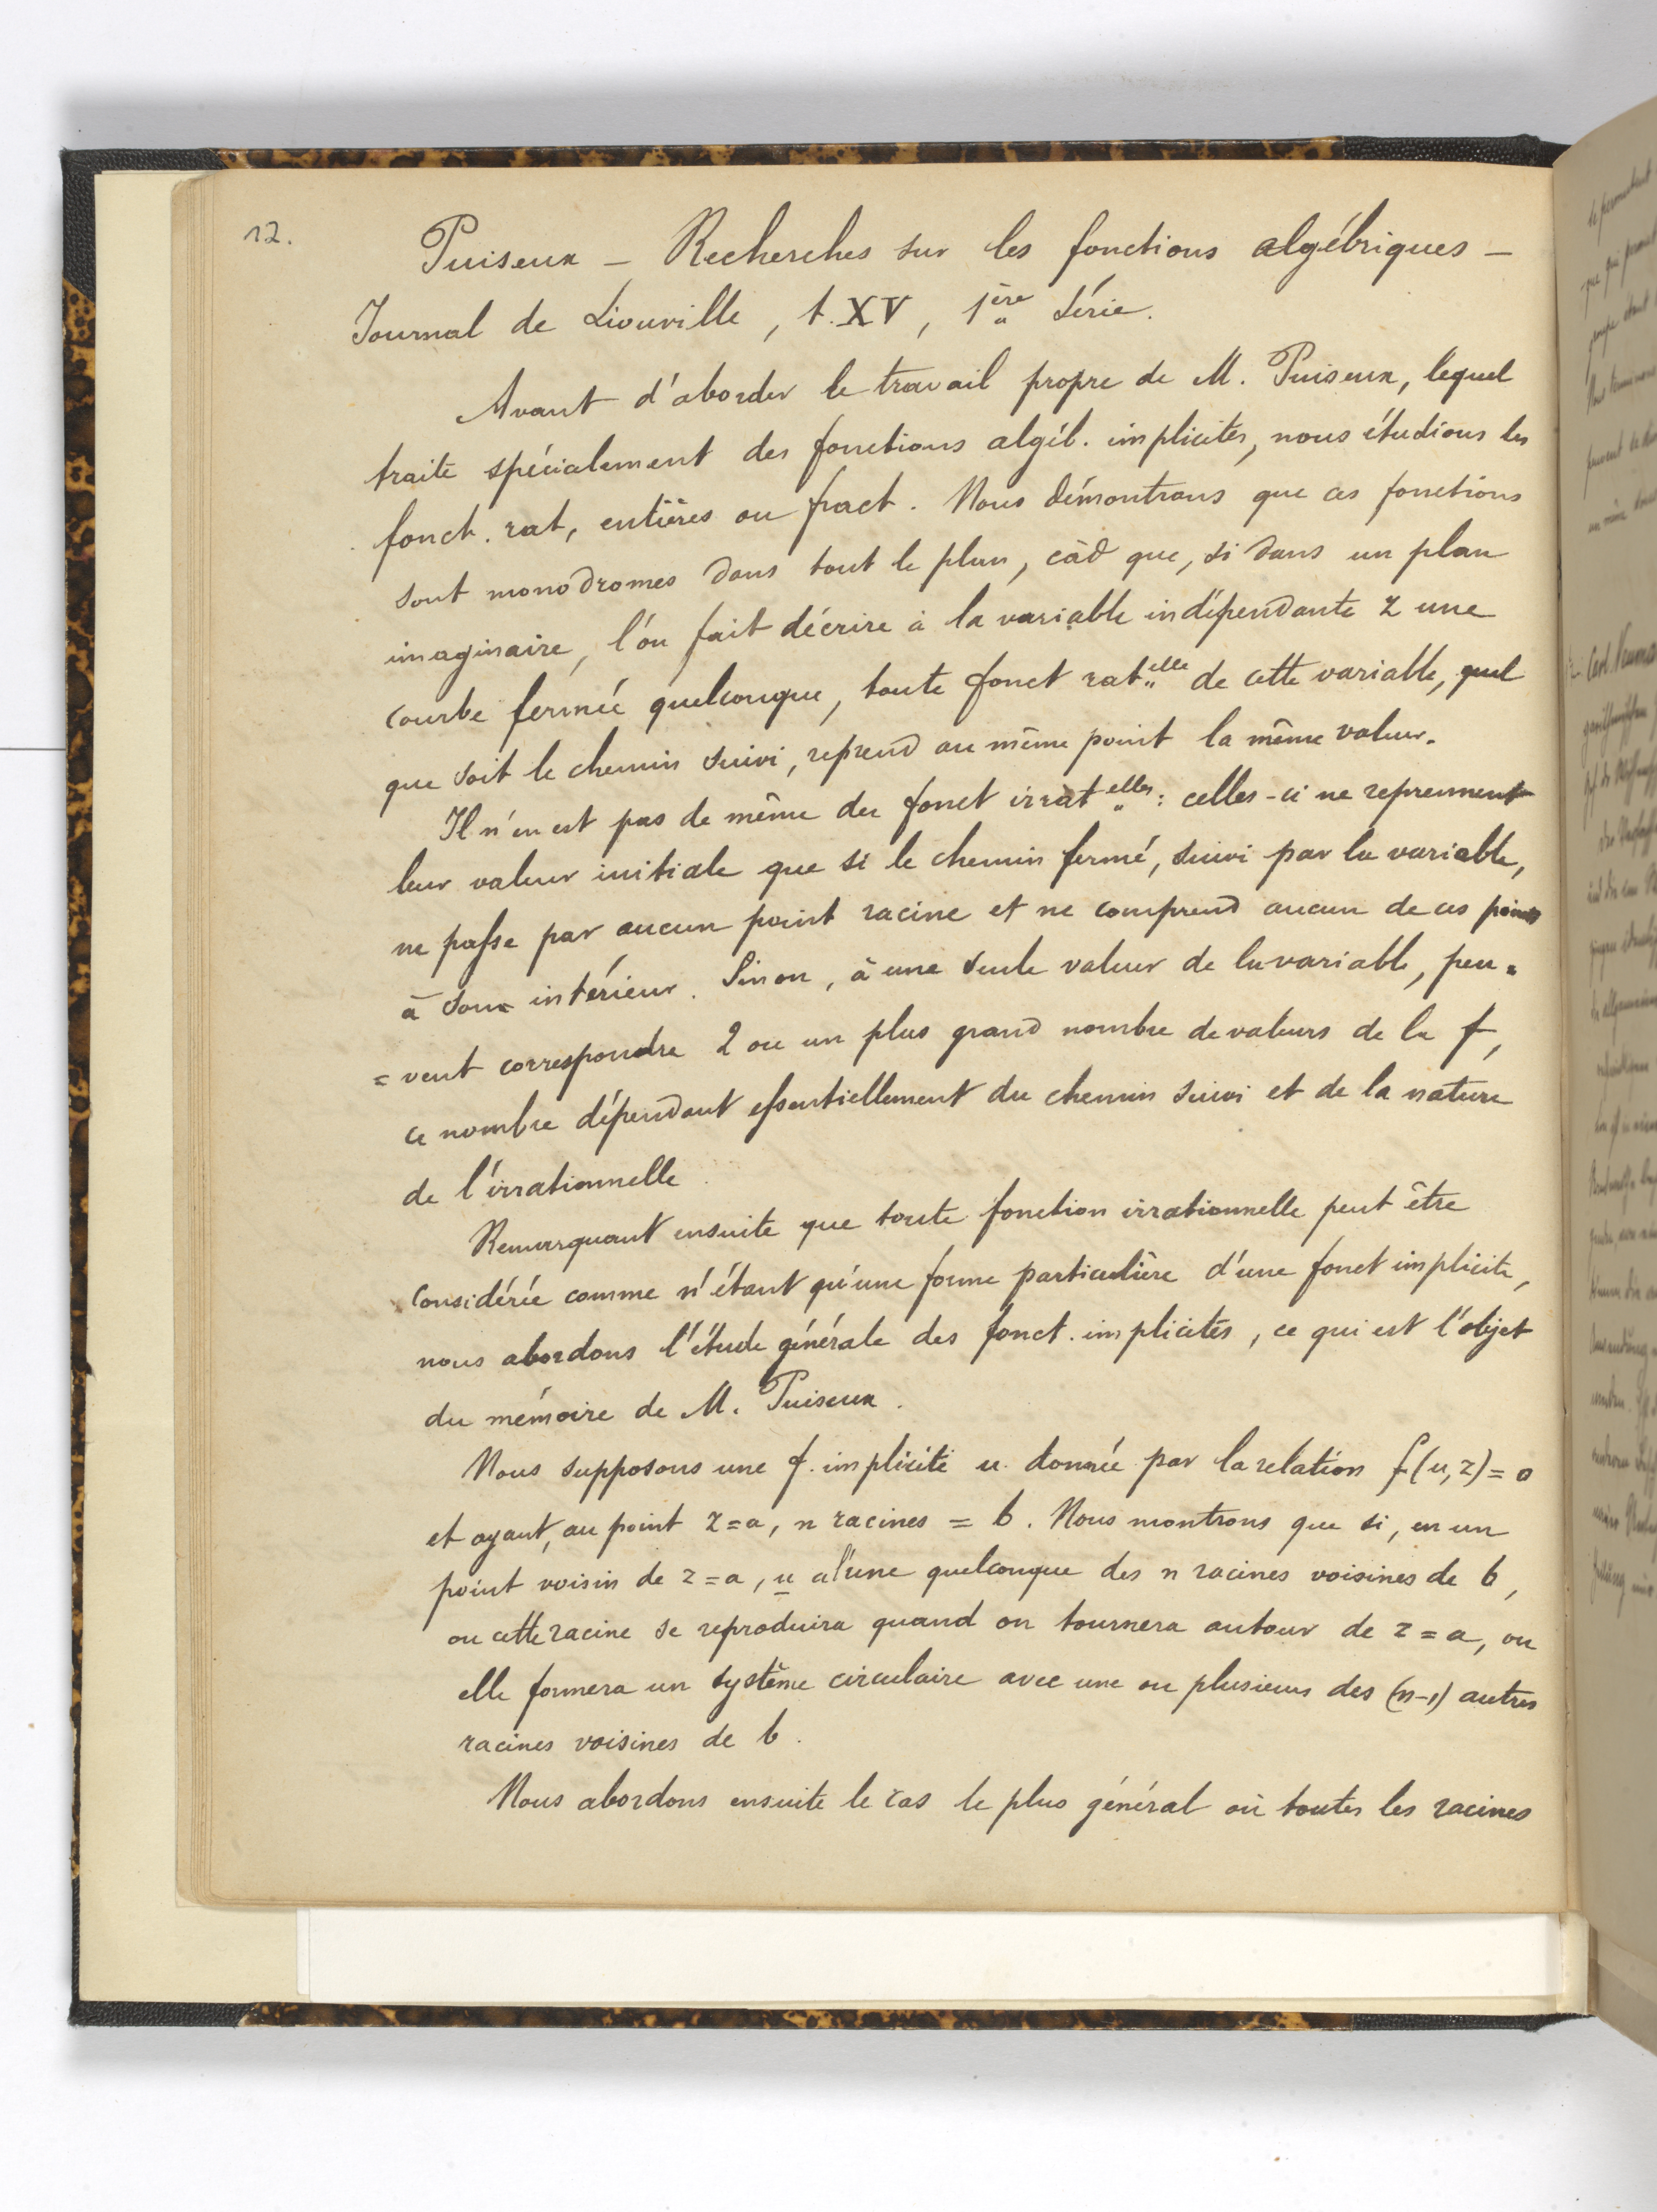 12.
Puiseux – Recherches sur les fonctions algébriques –
Journal de Liouville, t. XV, 1ère Série.
Avant d'aborder le travail propre de M. Puiseux, lequel
traite spécialement des fonctions algéb. implicites, nous étudions les
fonct. rat, entières ou fract. Nous démontrons que ces fonctions
sont monodromes dans tout le plan, càd que, si dans un plan
imaginaire, l'on fait décrire à la variable indépendante z une
courbe fermée quelconque, toute fonct rat.elle de cette variable, quel
que soit le chemin suivi, reprend au même point la même valeur.
Il n'en est pas de même des fonct irrat elles : celles-ci ne reprennent
leur valeur initiale que si le chemin fermé, suivi par la variable,
ne passe par aucun point racine et ne comprend aucun de ces points
à son intérieur. Sinon, à une seule valeur de la variable, peu=
=vent correspondre 2 ou un plus grand nombre de valeurs de la f,
ce nombre dépendant essentiellement du chemin suivi et de la nature
de l'irrationnelle.
Remarquant ensuite que toute fonction irrationnelle peut être
considérée comme n'étant qu'une forme particulière d'une fonct implicite,
nous abordons l'étude générale des fonct. implicites, ce qui est l'objet
du mémoire de M. Puiseux.
Nous supposons une f. implicite u donnée par la relation f(u,z)=0
et ayant, au point z=a, n racines = b. Nous montrons que si, en un
point voisin de z=a, u a l'une quelconque des n racines voisines de b,
ou cette racine se reproduira quand on tournera autour de z=a, ou
elle formera un système circulaire avec une ou plusieurs des (n-1) autres
racines voisines de b.
Nous abordons ensuite le cas le plus général où toutes les racines
Carl Neuman